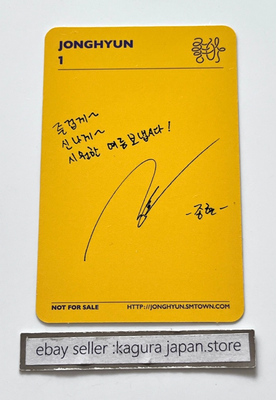 JONGHYUN
1
즐겁게~
신나게~
시원한 여름보냅시다!
-종현-
NOT FOR SALE
HTTP://JONGHYUN.SMTOWN.COM
ebay seller :kagura japan.store